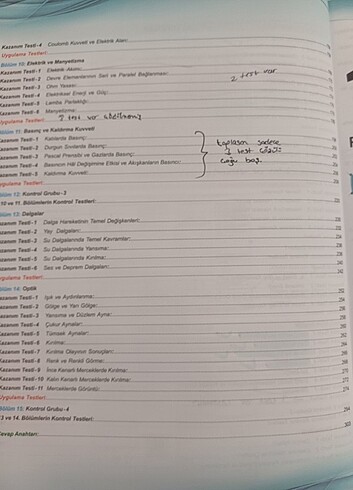 Kazanım Testi-4 Coulomb Kuvveti ve Elektrik Alan:
Uygulama Testleri:
Bölüm 10: Elektrik ve Manyetizma
Kazanım Testi-1 Elektrik Akımı:
Kazanım Testi-2 Devre Elemanlarının Seri ve Paralel Bağlanması: 2 test var
Kazanım Testi-3 Ohm Yasası:
Kazanım Testi-4 Elektriksel Enerji ve Güç:
Kazanım Testi-5 Lamba Parlaklığı:
Kazanım Testi-6 Manyetizma:
Uygulama Testleri: test var
Bölüm 11: Basınç ve Kaldırma Kuvveti
Kazanım Testi-1 Katılarda Basınç:
Kazanım Testi-2 Durgun Sıvılarda Basınç:
Kazanım Testi-3 Pascal Prensibi ve Gazlarda Basınç:
Kazanım Testi-4 Basıncın Hâl Değişimine Etkisi ve Akışkanların Basıncı:
Kazanım Testi-5 Kaldırma Kuvveti:
toplasan sadece
1 test çözülü
çoğu boş
Uygulama Testleri:
Bölüm 12: Kontrol Grubu-3
10 ve 11. Bölümlerin Kontrol Testleri:
Bölüm 13: Dalgalar
Kazanım Testi-1 Dalga Hareketinin Temel Değişkenleri:
Kazanım Testi-2 Yay Dalgaları:
Kazanım Testi-3 Su Dalgalarında Temel Kavramlar:
Kazanım Testi-4 Su Dalgalarında Yansıma:
Kazanım Testi-5 Su Dalgalarında Kırılma:
Kazanım Testi-6 Ses ve Deprem Dalgaları:
Uygulama Testleri:
Bölüm 14: Optik
Kazanım Testi-1 Işık ve Aydınlanma:
Kazanım Testi-2 Gölge ve Yarı Gölge:
Kazanım Testi-3 Yansıma ve Düzlem Ayna:
Kazanım Testi-4 Çukur Aynalar:
Kazanım Testi-5 Tümsek Aynalar:
Kazanım Testi-6 Kırılma:
Kazanım Testi-7 Kırılma Olayının Sonuçları:
Kazanım Testi-8 Renk ve Renkli Görme:
Kazanım Testi-9 İnce Kenarlı Merceklerde Kırılma:
Kazanım Testi-10 Kalın Kenarlı Merceklerde Kırılma:
Kazanım Testi-11 Merceklerde Görüntü:
Uygulama Testleri:
Bölüm 15: Kontrol Grubu-4
13 ve 14. Bölümlerin Kontrol Testleri:
Cevap Anahtarı: